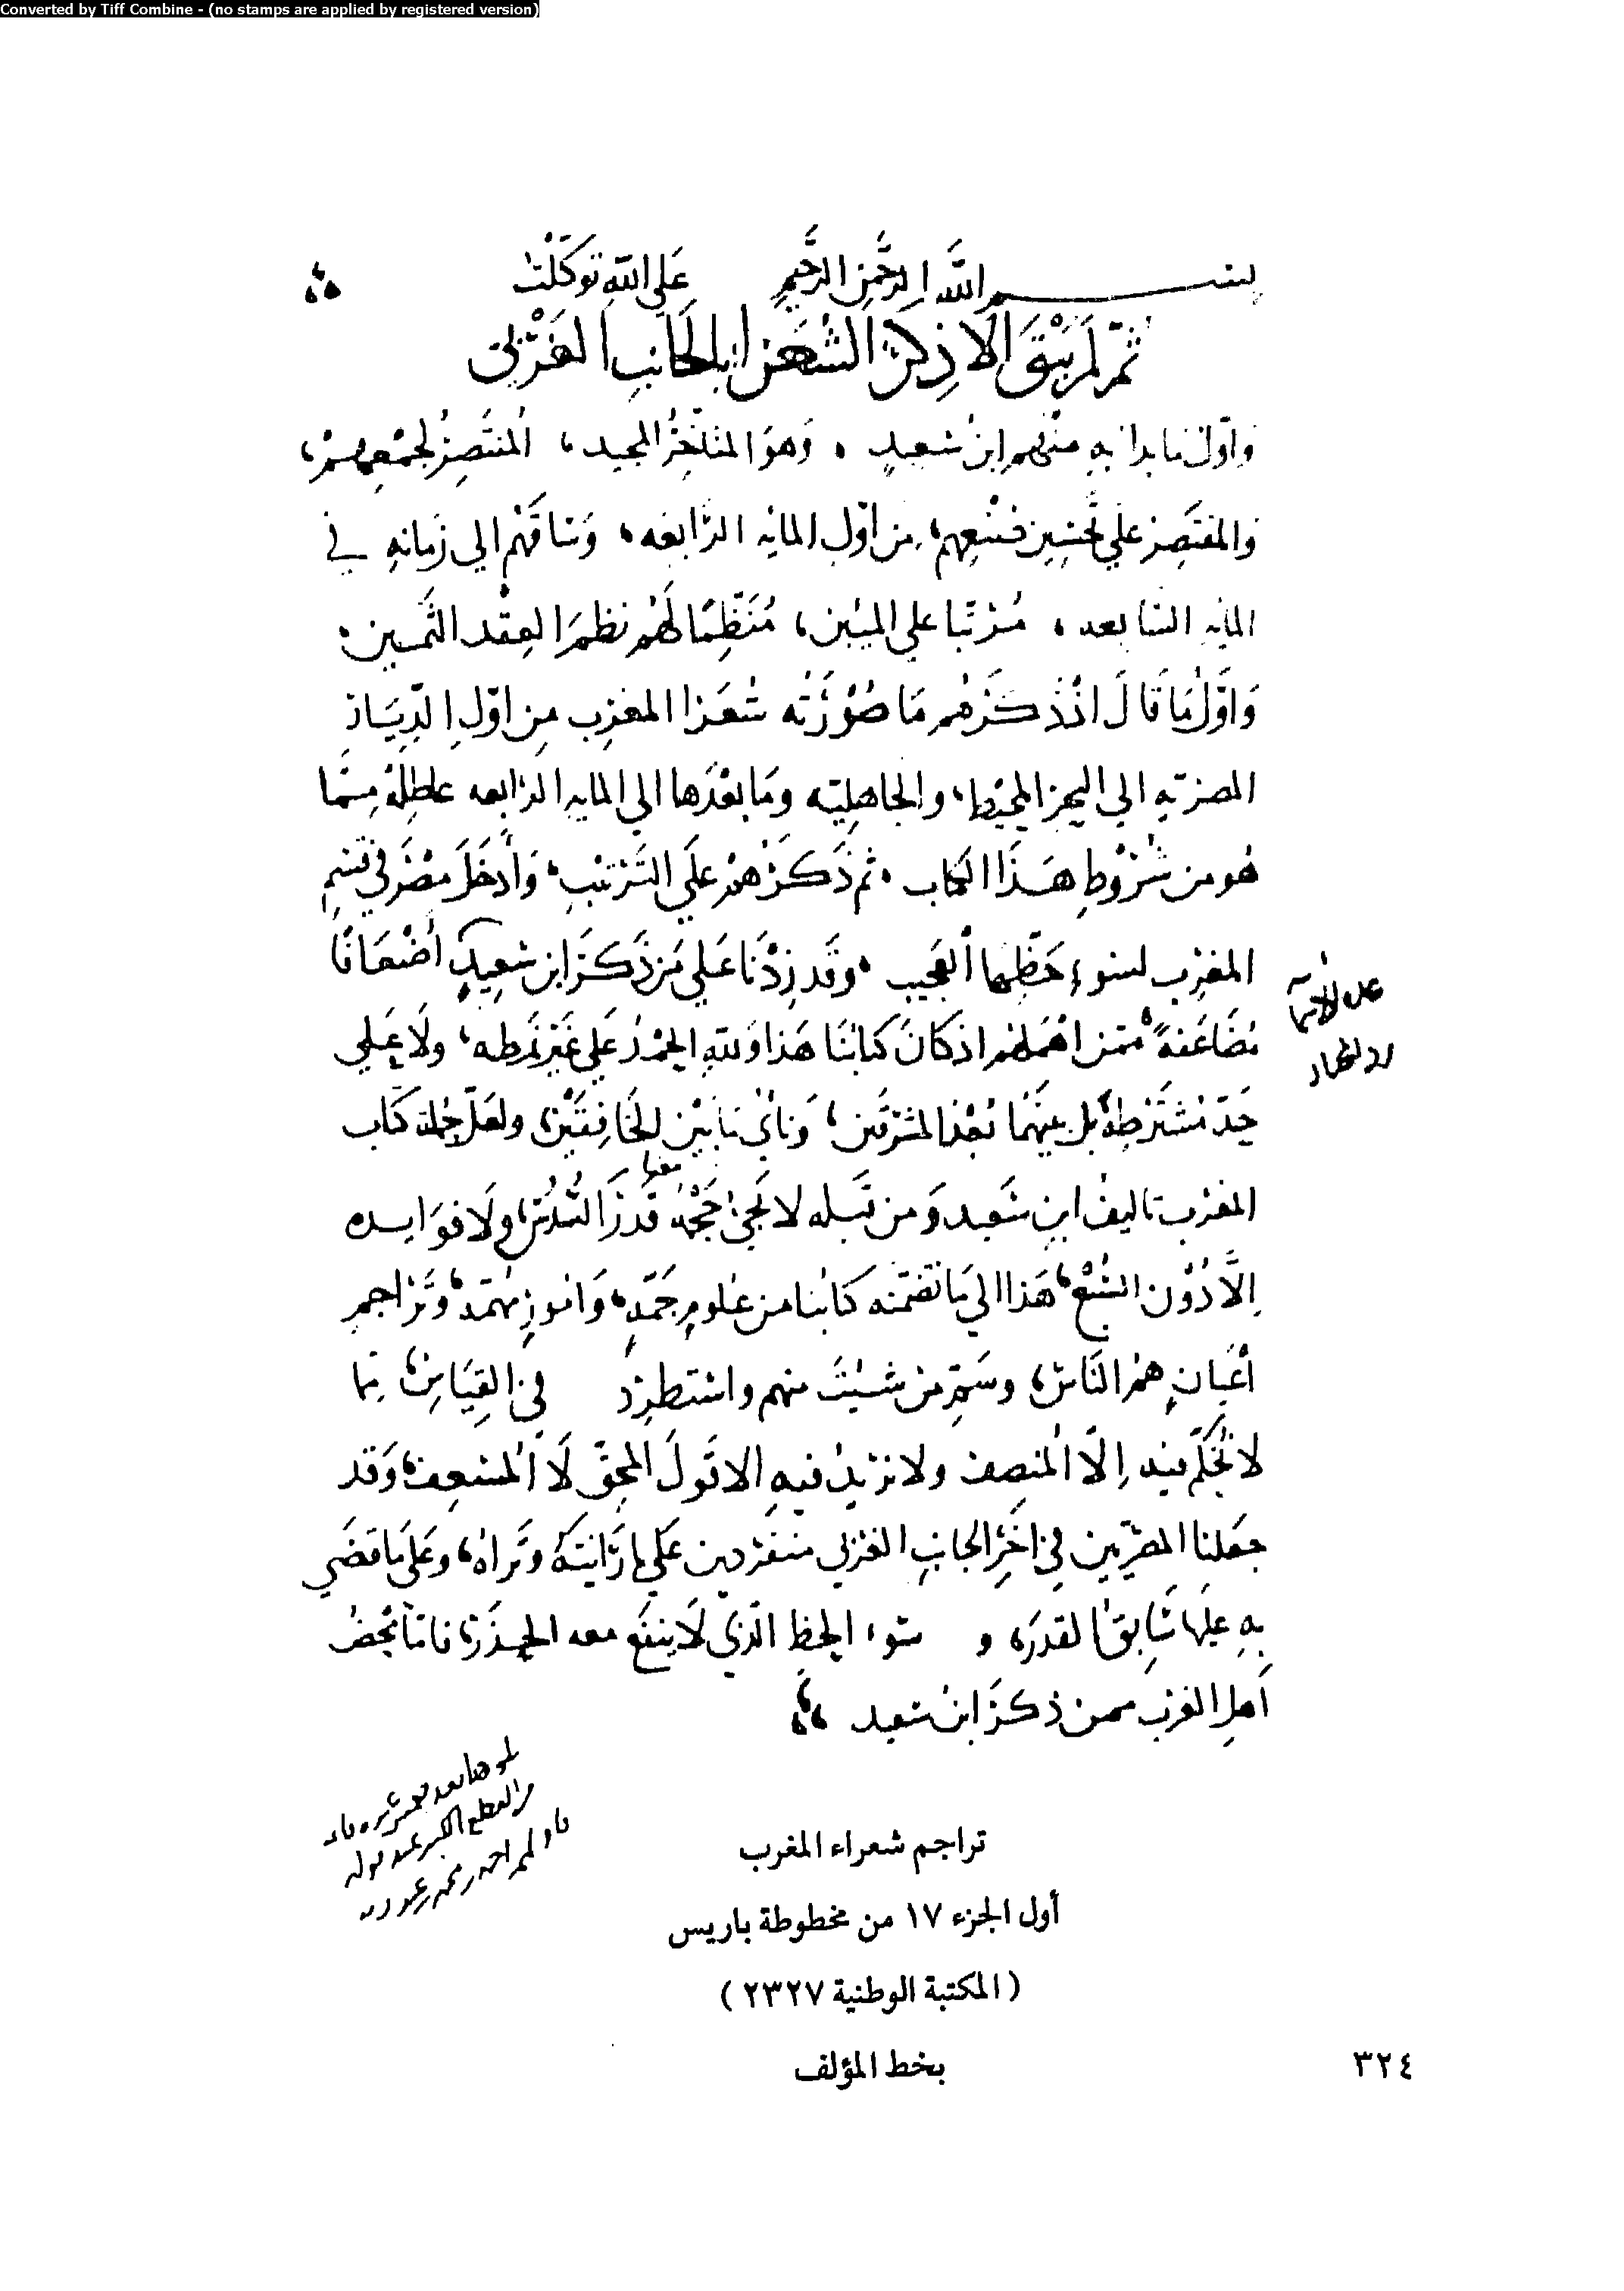 Converted by Tiff Combine - (no stamps are applied by registered version)
بسم الله الرحمن الرحيم على الله توكلت
ثم لم يبق الا ذكر الشعرا بالجانب الغربي
واول ما بدا به منهم ابن سعيد، وهو المتاخر المجيد، المنتصر لجمعهم،
والمقتصر على تحسين صنيعهم، من اول المايه الرابعه، وساقهم الي زمانه في
المايه السابعه، مرتبا على الميين، منظما لهم نظم العقد الثمين،
واول ما قال اذ ذكرهم ما صورته شعرا المغرب من اول الديار
المصرية الى البحر المحيط، والجاهلية وما بعدها الى المايه الرابعه عاطلة مما
هو من شروط هذا الكتاب، ثم ذكرهم على الترتيب، وأدخل مصر في قسم
المغرب لسوء حظها العجيب، وقد زدنا على من ذكر ابن سعيد أضعافًا
مضاعفةً ممن اهملهم اذ كان كتابنا هذا ولله الحمد على غير نمطه، ولا على
حد مشترطه بل بينهما بعد المشرقين، وناي ما بين الخافقين، ولعل جملة كتاب
المغرب تاليف ابن سعيد ومن قبله لا يجي حجمه قدر السدس، ولا فوايده
إلا دون السبع، هذا الي ما تضمنه كتابنا من علوم جمّة، وامور مهمة، وتراجم
أعيان هم الناس، وسمّ من شيت منهم واستطرد في القياس، مما
لا تحكم فيه إلا المنصف ولا نزيد فيه الا قول المحق لا المتعسف، وقد
جعلنا المصريين في اخر الجانب الغربي منفردين على ما رأيته وتراه، وعلى ما قضي
به عليها سابق القدر، و سوء الحظ الذي لا ينفع معه الحذر، فاما محض
اهل الغرب ممن ذكر ابن سعيد
تراجم شعراء المغرب
أول الجزء ١٧ من مخطوطة باريس
(المكتبة الوطنية ٢٣٢٧)
بخط المؤلف
٣٢٤